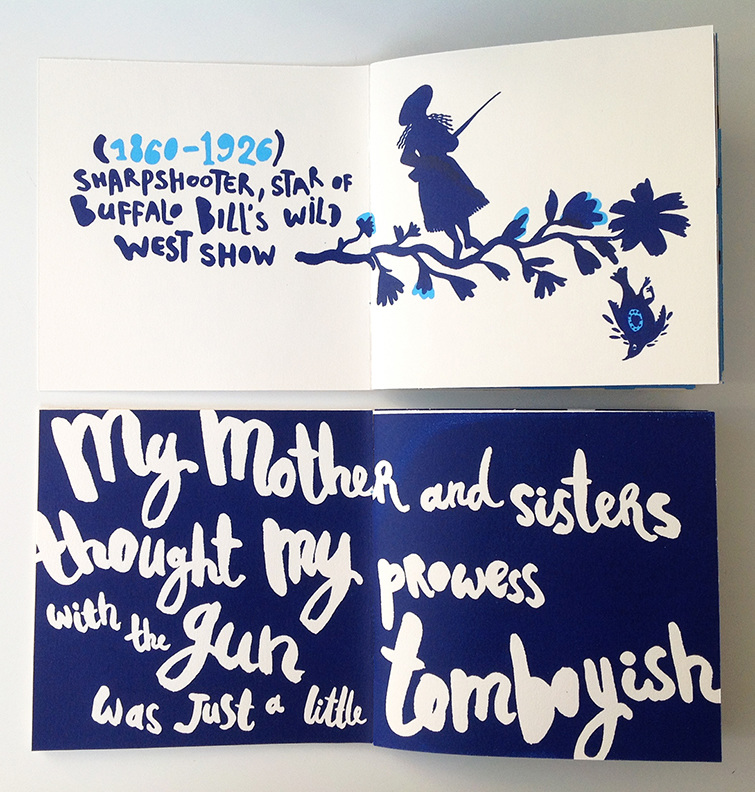 (1860-1926)
SHARPSHOOTER, STAR OF
BUFFALO BILL'S WILD
WEST SHOW
My Mother and sisters
thought my prowess
with the gun
was just a little tomboyish